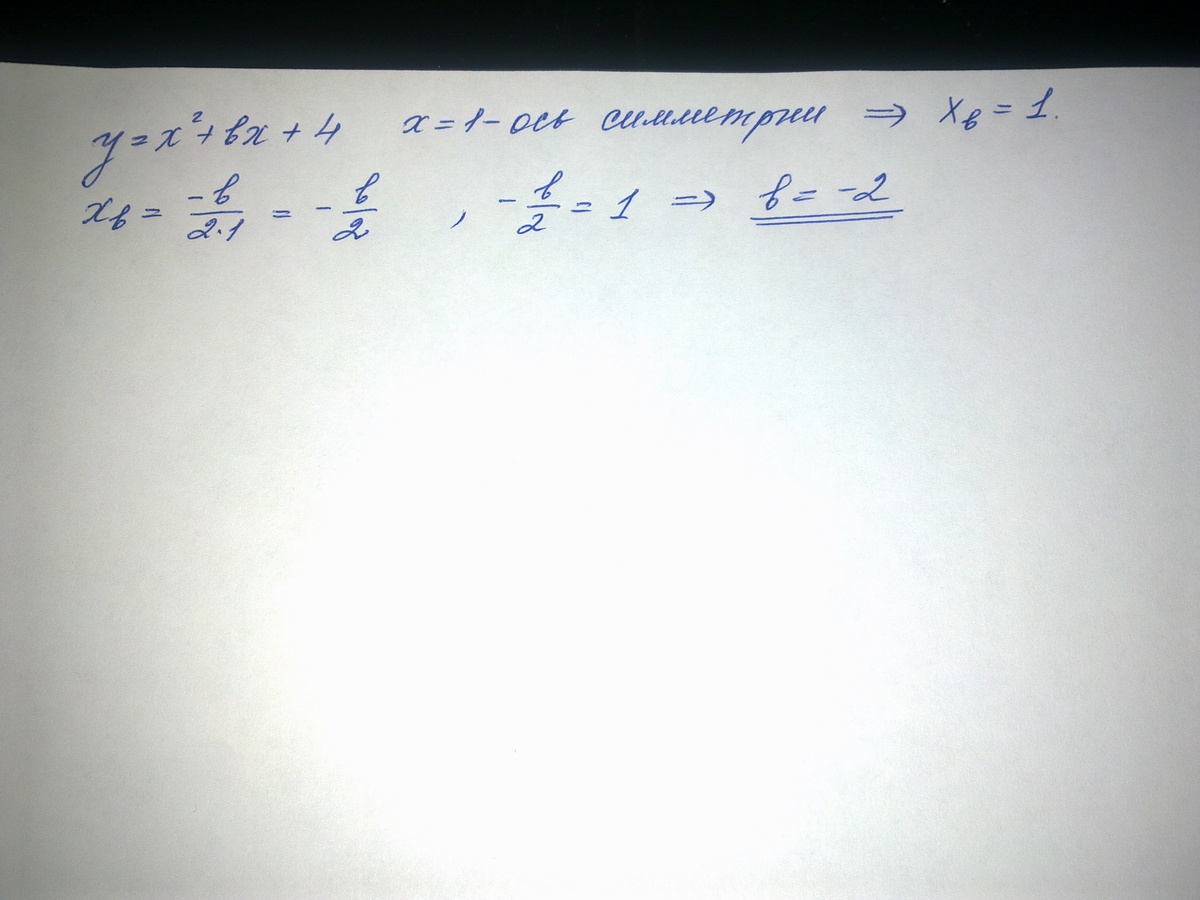 y = x² + bx + 4 x = 1 - ось симметрии ⇒ x_в = 1.
x_в = -b/2·1 = -b/2 , -b/2 = 1 ⇒ b = -2